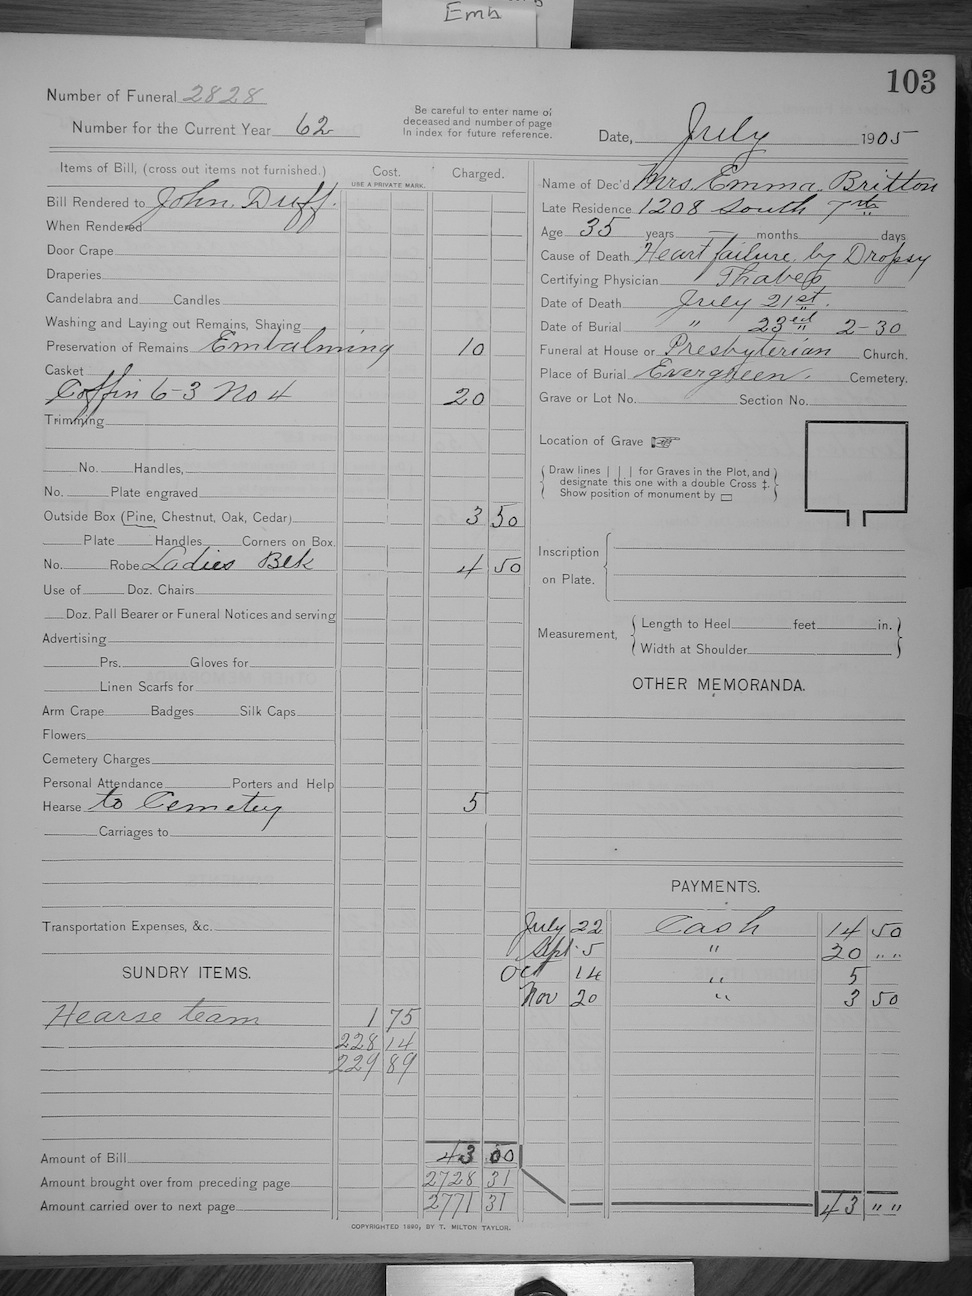 Emb
103
Number of Funeral 2828
Number for the Current Year 62
Be careful to enter name of
deceased and number of page
In index for future reference.
Date, July 1905
Items of Bill, (cross out items not furnished.)
Cost.
USE A PRIVATE MARK.
Charged.
Bill Rendered to John. Duff.
When Rendered
Door Crape
Draperies
Candelabra and Candles
Washing and Laying out Remains, Shaving
Preservation of Remains Embalming 10
Casket
Coffin 6-3 No 4 20
Trimming
No. Handles,
No. Plate engraved
Outside Box (Pine, Chestnut, Oak, Cedar) 3 50
Plate Handles Corners on Box.
No. Robe Ladies Blk 4 50
Use of Doz. Chairs
Doz. Pall Bearer or Funeral Notices and serving
Advertising
Prs. Gloves for
Linen Scarfs for
Arm Crape Badges Silk Caps
Flowers
Cemetery Charges
Personal Attendance Porters and Help
Hearse to Cemetey 5
Carriages to
Transportation Expenses, &c.
SUNDRY ITEMS.
Hearse team 1 75
228 14
229 89
Amount of Bill 43 00
Amount brought over from preceding page 2728 31
Amount carried over to next page 2771 31
Name of Dec'd Mrs. Emma. Britton
Late Residence 1208 South 7th
Age 35 years — months days
Cause of Death Heart failure by Dropsy
Certifying Physician
Date of Death July 21st.
Date of Burial " 23ed 2-30
Funeral at House or Presbyterian Church.
Place of Burial Evergreen. Cemetery.
Grave or Lot No. Section No.
Location of Grave
Draw lines | | | for Graves in the Plot, and
designate this one with a double Cross ‡.
Show position of monument by ▭
Inscription
on Plate.
Measurement,
Length to Heel feet in.
Width at Shoulder
OTHER MEMORANDA.
PAYMENTS.
July 22 Cash 14 50
Sept 5 " 20 " "
Oct 14 " 5
Nov 20 " 3 50
43 " "
COPYRIGHTED 1890, BY T. MILTON TAYLOR.